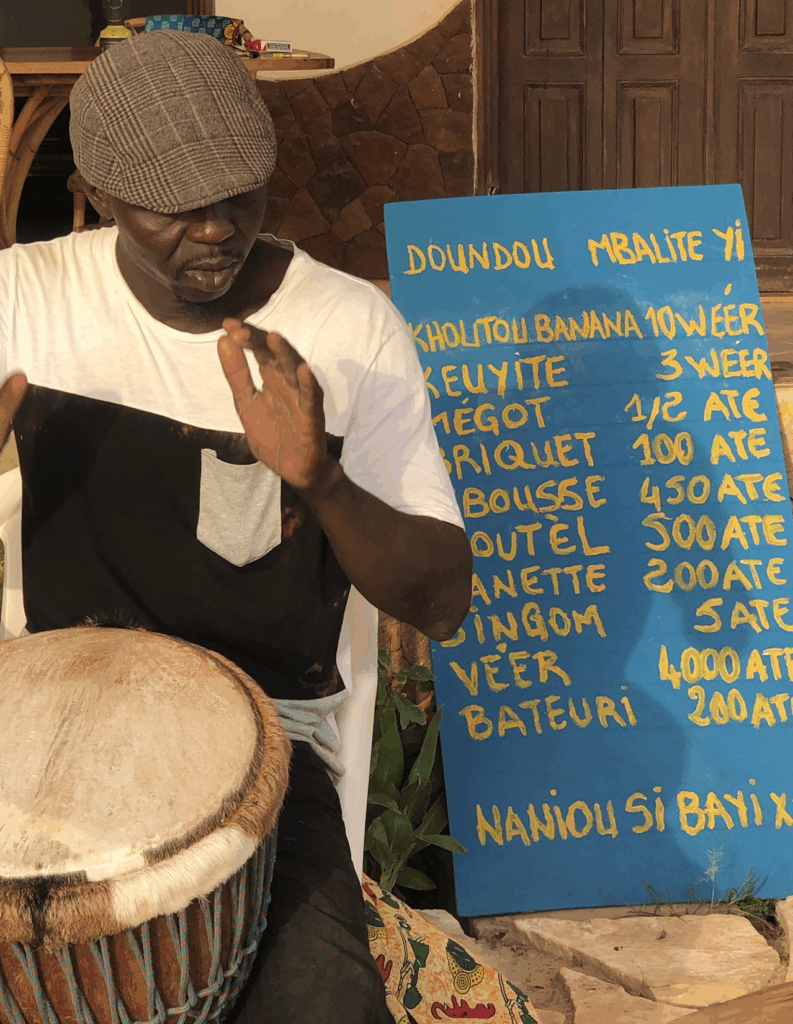 DOUNDOU MBALITE Yi
KHOLITOU BANANA 10 WÉÉR
KEUYiTE 3 WEER
MÉGOT 1/2 ATE
BRIQUET 100 ATE
BOUSSE 450 ATE
OUTÈL 500 ATE
ANETTE 200 ATE
SiNGOM 5 ATE
VÉER 4000 ATE
BATEURi 200 AT
NANiOU Si BAYi